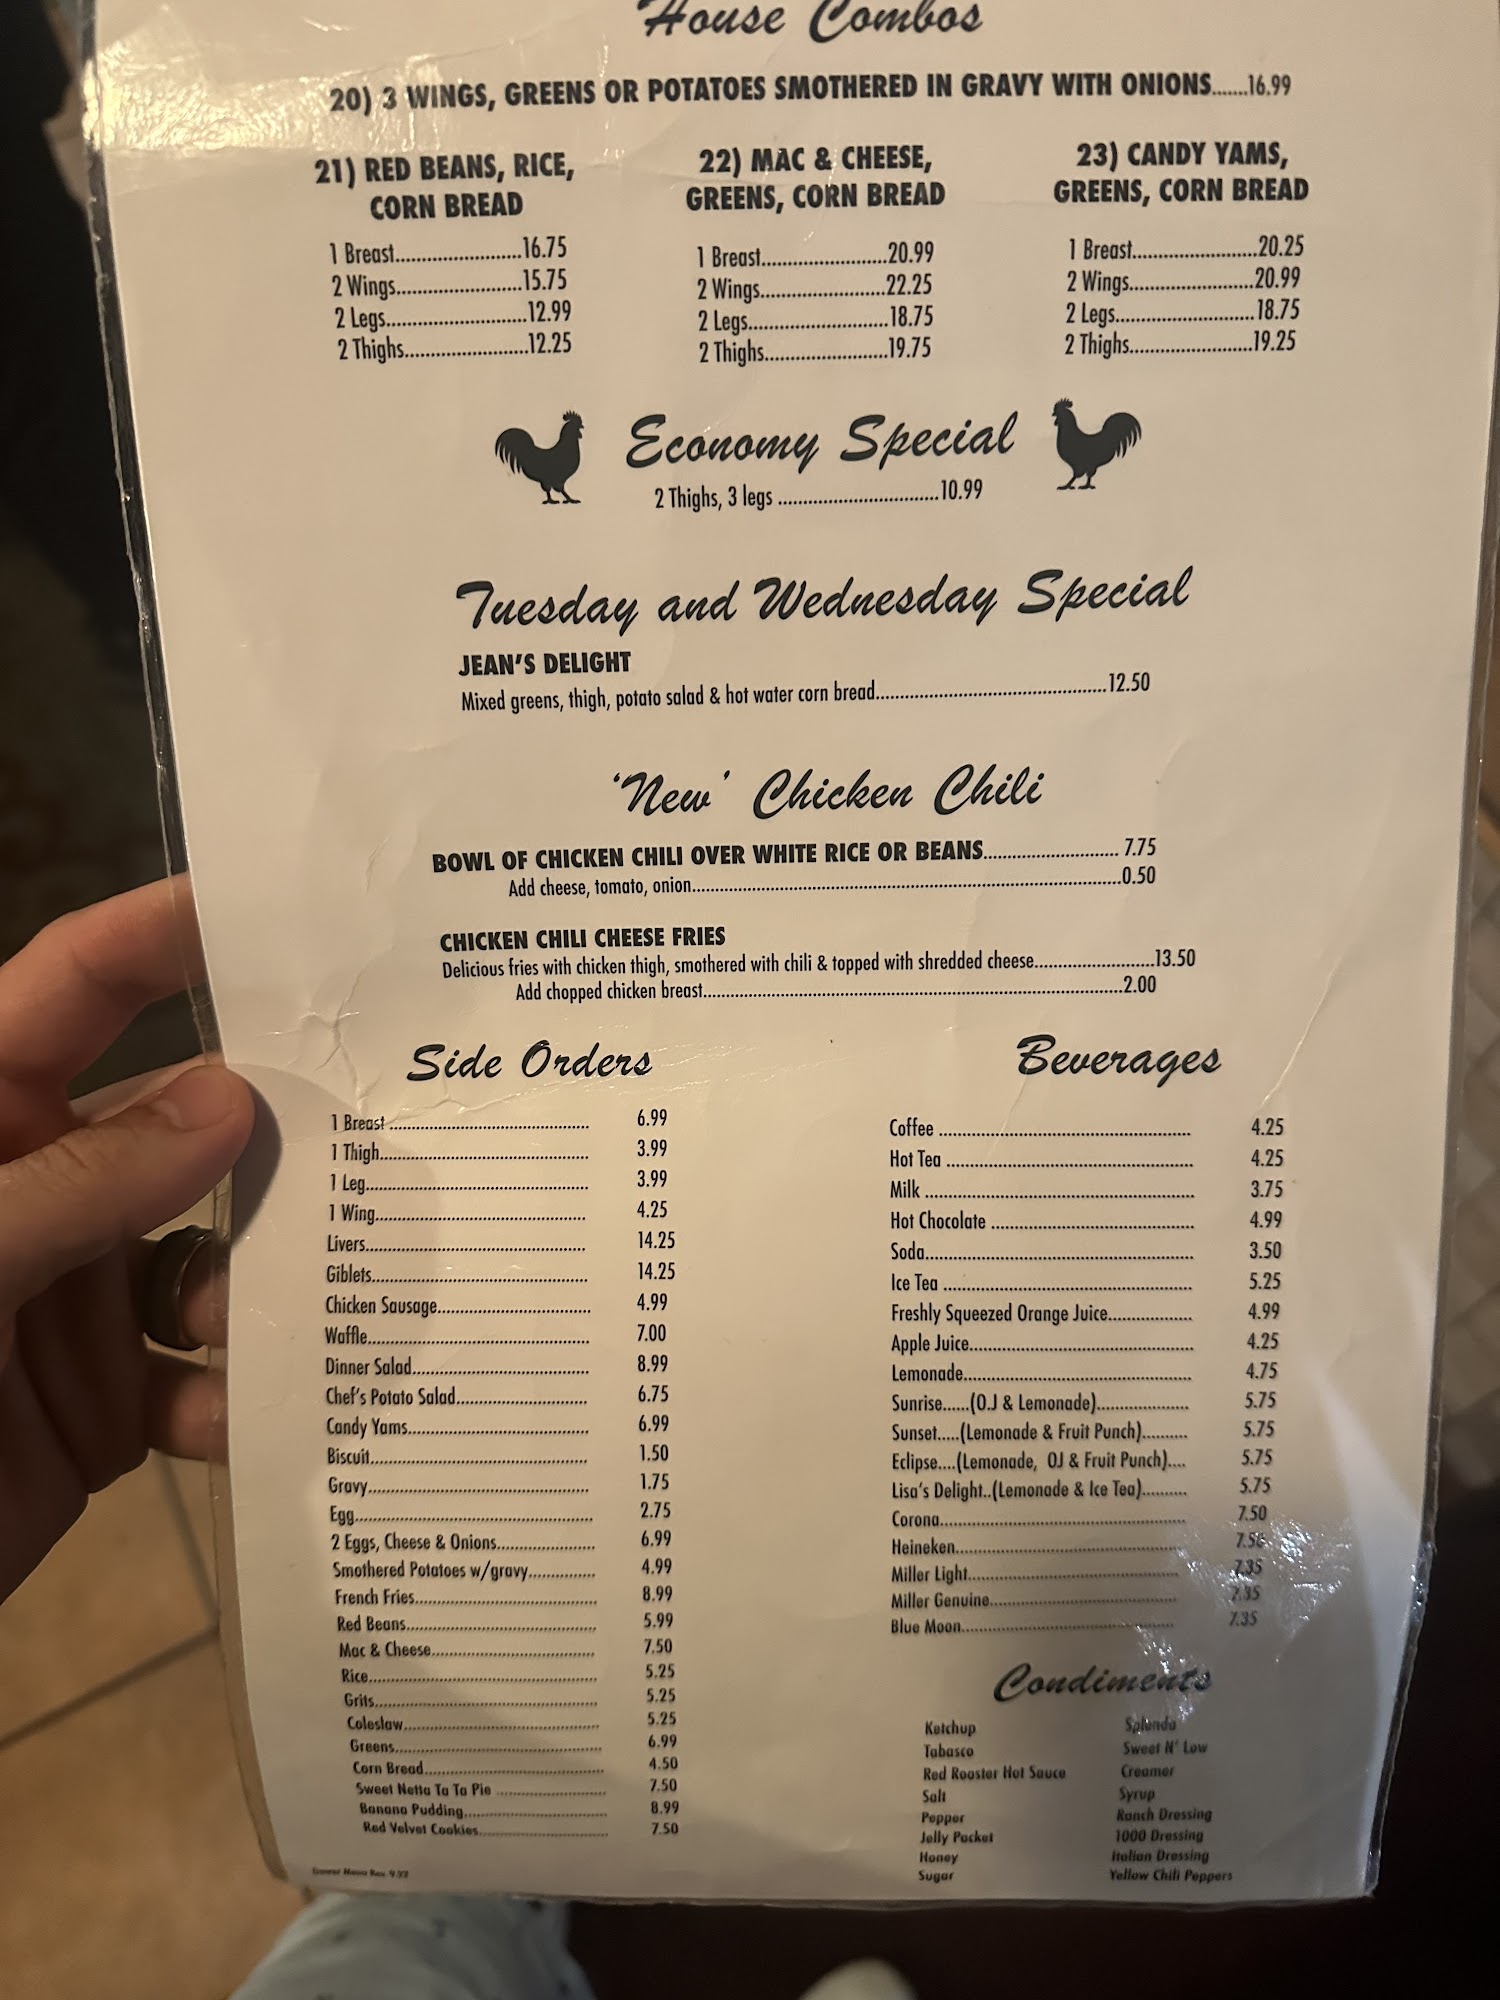 House Combos
20) 3 WINGS, GREENS OR POTATOES SMOTHERED IN GRAVY WITH ONIONS.......16.99
21) RED BEANS, RICE,
CORN BREAD
1 Breast.........................16.75
2 Wings.........................15.75
2 Legs............................12.99
2 Thighs.........................12.25
22) MAC & CHEESE,
GREENS, CORN BREAD
1 Breast.........................20.99
2 Wings.........................22.25
2 Legs............................18.75
2 Thighs.........................19.75
23) CANDY YAMS,
GREENS, CORN BREAD
1 Breast.........................20.25
2 Wings.........................20.99
2 Legs............................18.75
2 Thighs.........................19.25
Economy Special
2 Thighs, 3 legs ................................10.99
Tuesday and Wednesday Special
JEAN'S DELIGHT
Mixed greens, thigh, potato salad & hot water corn bread..............................................12.50
'New' Chicken Chili
BOWL OF CHICKEN CHILI OVER WHITE RICE OR BEANS........................... 7.75
Add cheese, tomato, onion.....................................................................................0.50
CHICKEN CHILI CHEESE FRIES
Delicious fries with chicken thigh, smothered with chili & topped with shredded cheese........................13.50
Add chopped chicken breast....................................................................................2.00
Side Orders
1 Breast ........................................ 6.99
1 Thigh.......................................... 3.99
1 Leg............................................. 3.99
1 Wing.......................................... 4.25
Livers............................................ 14.25
Giblets........................................... 14.25
Chicken Sausage............................... 4.99
Waffle............................................ 7.00
Dinner Salad................................... 8.99
Chef's Potato Salad.......................... 6.75
Candy Yams.................................... 6.99
Biscuit............................................ 1.50
Gravy............................................ 1.75
Egg................................................ 2.75
2 Eggs, Cheese & Onions.................... 6.99
Smothered Potatoes w/gravy.............. 4.99
French Fries..................................... 8.99
Red Beans....................................... 5.99
Mac & Cheese.................................. 7.50
Rice................................................ 5.25
Grits............................................... 5.25
Coleslaw......................................... 5.25
Greens............................................ 6.99
Corn Bread...................................... 4.50
Sweet Netta Ta Ta Pie ....................... 7.50
Banana Pudding............................... 8.99
Red Velvet Cookies............................ 7.50
Beverages
Coffee .................................................... 4.25
Hot Tea ................................................... 4.25
Milk ....................................................... 3.75
Hot Chocolate .......................................... 4.99
Soda........................................................ 3.50
Ice Tea .................................................... 5.25
Freshly Squeezed Orange Juice.................. 4.99
Apple Juice.............................................. 4.25
Lemonade................................................ 4.75
Sunrise......(O.J & Lemonade)................... 5.75
Sunset.....(Lemonade & Fruit Punch).......... 5.75
Eclipse....(Lemonade, OJ & Fruit Punch).... 5.75
Lisa's Delight..(Lemonade & Ice Tea).......... 5.75
Corona.................................................... 7.50
Heineken.................................................
Miller Light.............................................. 7.35
Miller Genuine.......................................... 7.35
Blue Moon............................................... 7.35
Condiments
Ketchup
Tabasco
Red Rooster Hot Sauce
Salt
Pepper
Jelly Packet
Honey
Sugar
Splenda
Sweet N' Low
Creamer
Syrup
Ranch Dressing
1000 Dressing
Italian Dressing
Yellow Chili Peppers